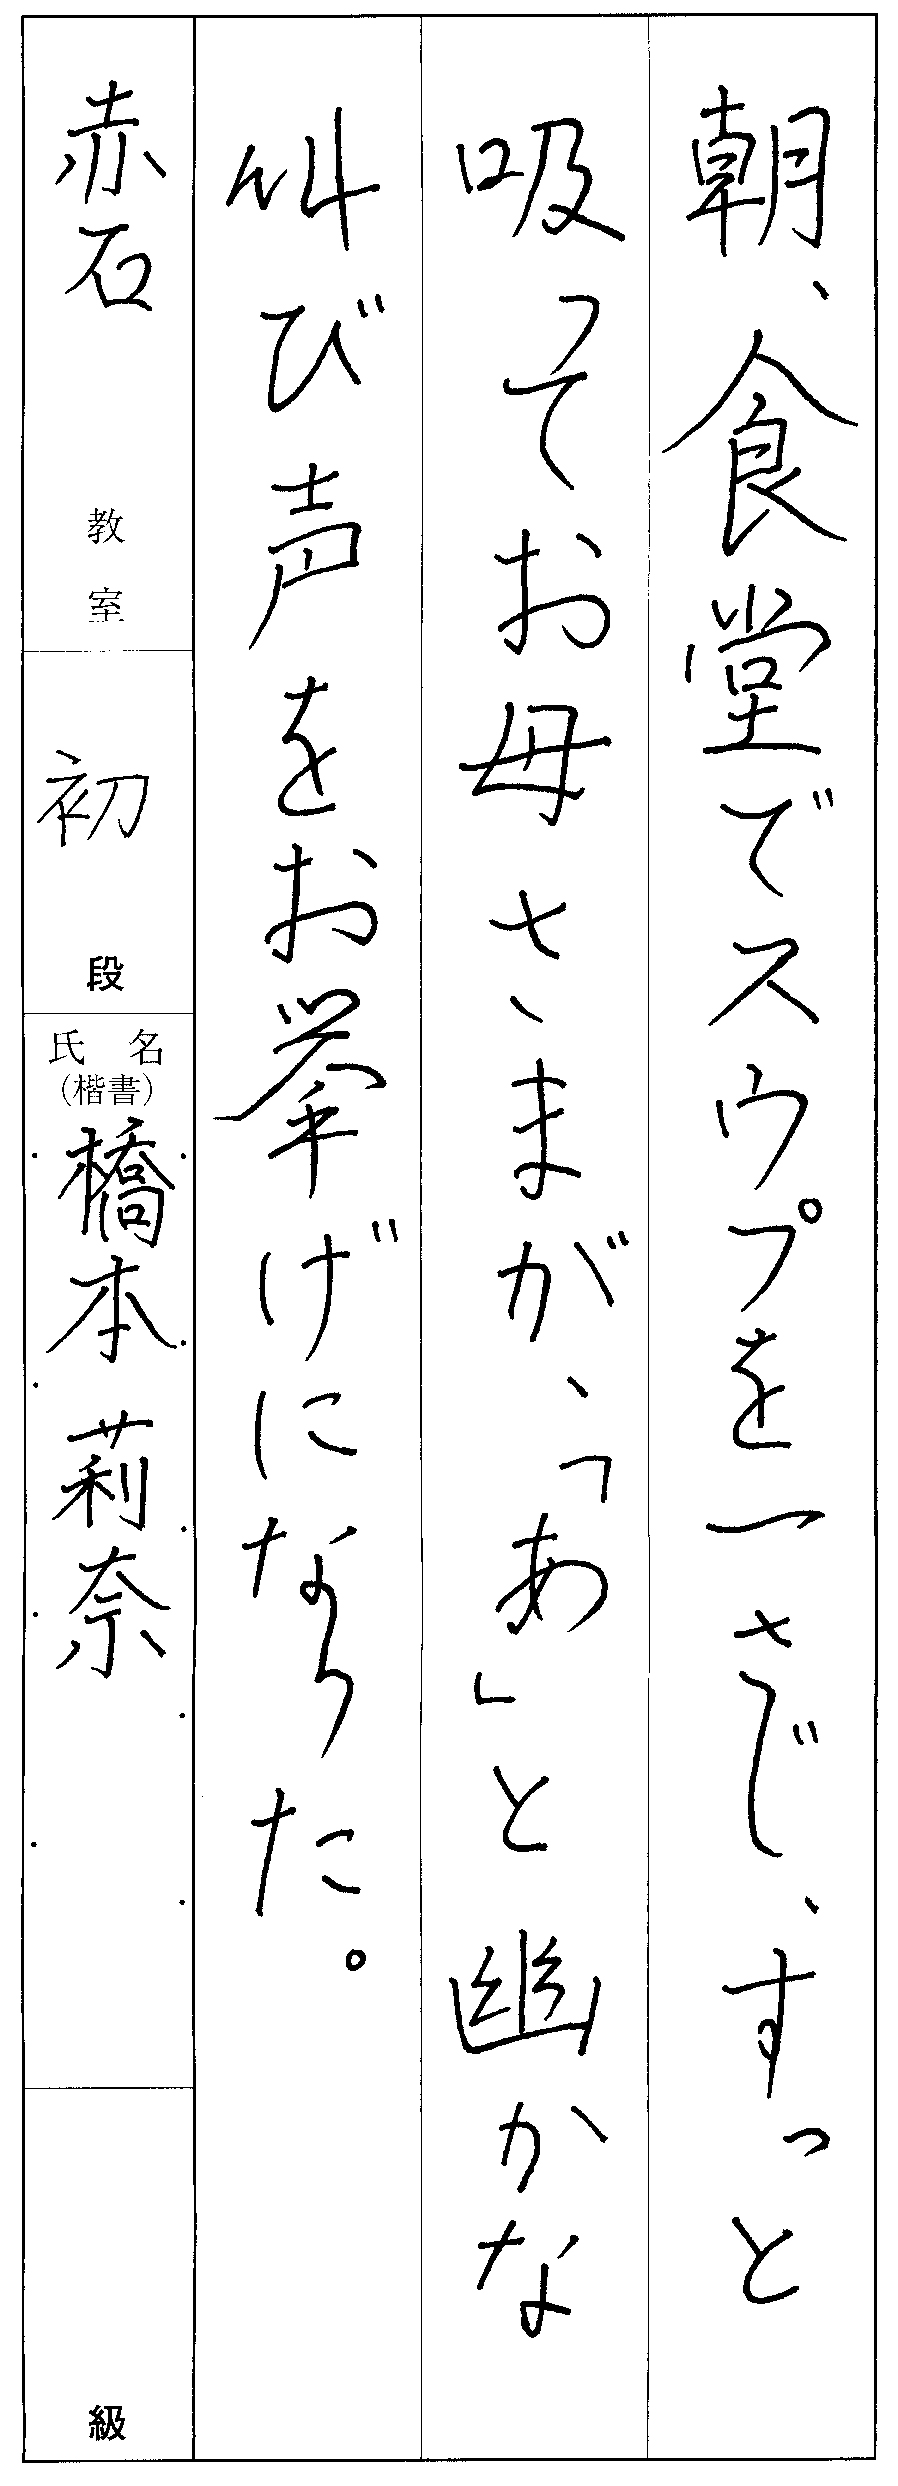 朝、食堂でスウプを一さじ、すっと
吸ってお母さまが、「あ」と幽かな
叫び声をお挙げになった。
赤石 教室
初 段
氏名
(楷書)
橋本 莉奈
級